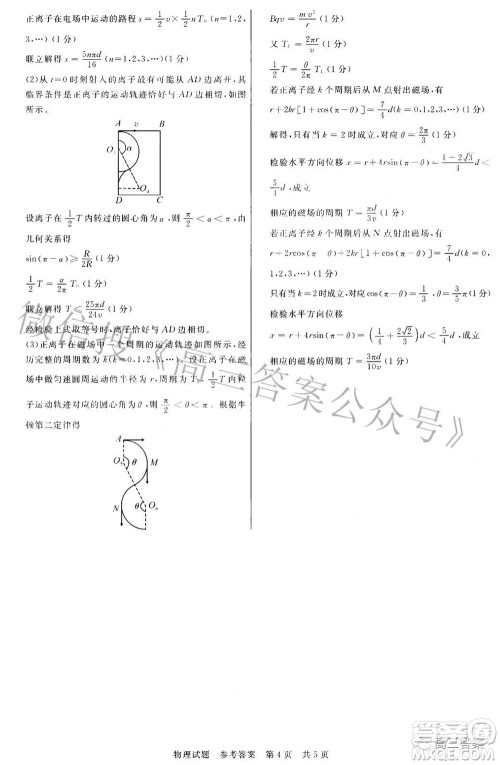 正离子在电场中运动的路程 s=1/2 v×1/2 n(n=1,2,
3,…)(1分)
联立解得 s=5nπd/16 (n=1,2,3,…)(1分)
(2)从 t=0时刻射入的离子最有可能与 AD 边离开,其
临界条件是正离子的运动轨迹恰好与 AD 边相切,如图
所示。
A v B
O₁ α
O₂
D C
设离子在 1/2 T 内转过的圆心角为α,则 π/2<α<π,由
几何关系得
sin(π-α)≥R/2R (1分)
1/2 T=α/2π T₀ (1分)
联立解得 T≤25πd/24v (1分)
经检验上式取等号时,离子恰好与 AD 边相切。
(3)正离子在磁场中一只做匀速圆周运动,射出前,经
历完整的周期数为 k(k=0,1,2,3,…)。设正离子在磁
场中做匀速圆周运动的半径为 r,周期为 T₁,在 1/2 T 内粒
子运动轨迹对应的圆心角为θ,则 π/2<θ<π。根据牛
顿第二定律得
A
O θ M
N θ O₀
Bqv=mv²/r (1分)
又 T₁=2πr/v (1分)
1/2 T=θ/2π T₁ (1分)
若正离子经 k 个周期后从 M 点射出磁场,有
r+2kr[1+cos(π-θ)]=7/4 d(k=0,1,2,3,…)(1分)
解得,只有当 k=2 时成立,θ=2π/3 (1分)
检验水平方向位移 x=r+4rsin(π-θ)=(1+2√3)/4 d<
5/4 d
相应的磁场的周期 T=πd/3v (1分)
若正离子经 k 个周期后从 N 点射出磁场,有
r+2rcos(π-θ)+2kr[1+cos(π-θ)]=7/4 d(k=0,
1,2,3,…)(1分)
解得:只有当 k=2 时成立,cos(π-θ)=1/3,θ=3π/5 (1分)
检验水平方向位移
x=r+4rsin(π-θ)=(1/4+2√2/3)d<5/4 d
相应的磁场的周期 T=3πd/10v (1分)
微信搜《高三答案公众号》
物理试题 参考答案 第4页 共5页
高三答案